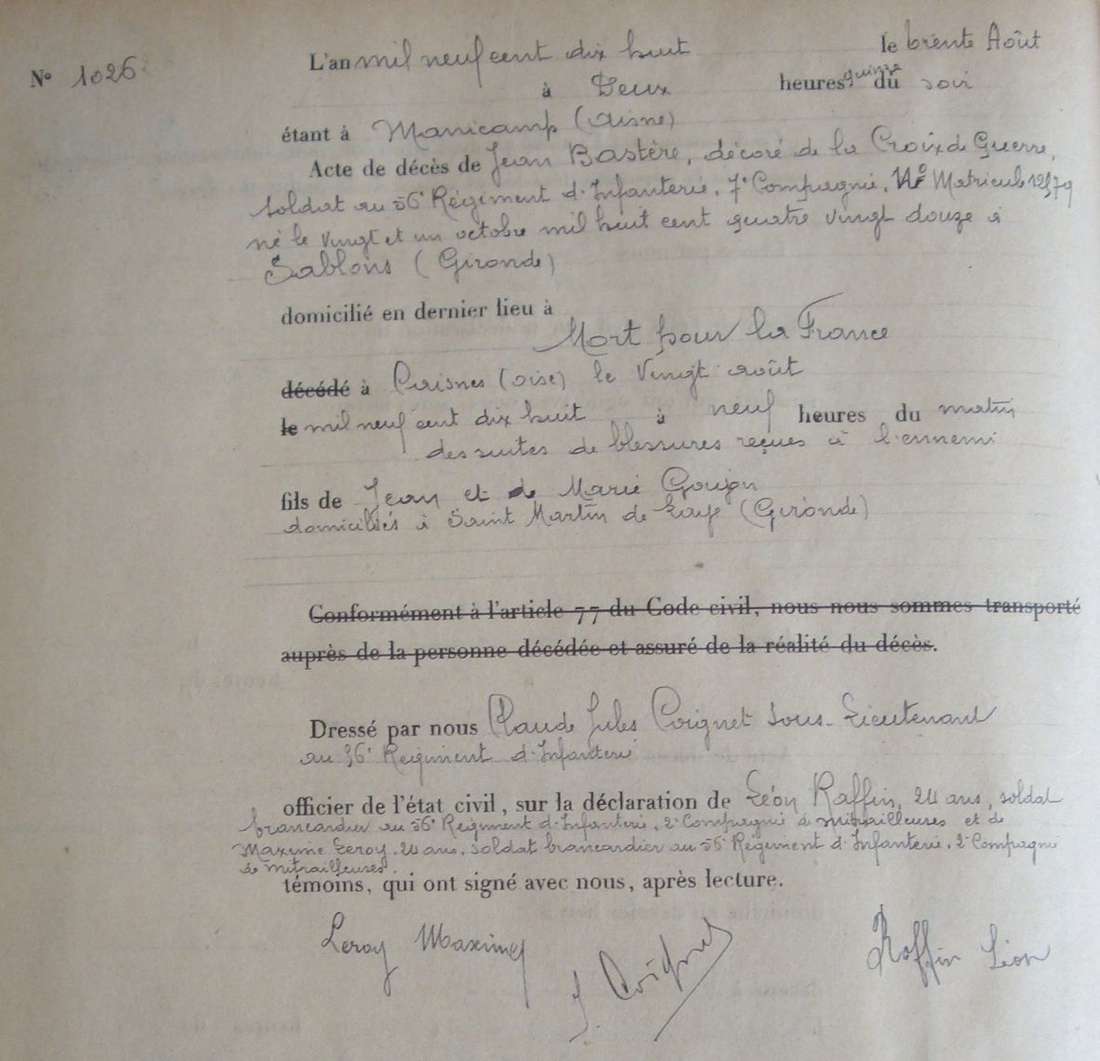 N° 1026 L'an mil neuf cent dix huit le trente Août
à Deux heures quinze du soir
étant à Manicamp (Aisne)
Acte de décès de Jean Bastère, décoré de la Croix de Guerre,
soldat au 56e Régiment d'Infanterie, 7e Compagnie, N° Matricule 12579
né le vingt et un octobre mil huit cent quatre vingt douze à
Sablons (Gironde)
domicilié en dernier lieu à
Mort pour la France
décédé à Caisnes (oise) le Vingt août
le mil neuf cent dix huit à neuf heures du matin
des suites de blessures reçues à l'ennemi
fils de Jean et de Marie Goujon
domiciliés à Saint Martin de Laye (Gironde)
Conformément à l'article 77 du Code civil, nous nous sommes transporté
auprès de la personne décédée et assuré de la réalité du décès.
Dressé par nous Claude Jules Coignet Sous-Lieutenant
au 56e Régiment d'Infanterie
officier de l'état civil, sur la déclaration de Léon Raffin, 24 ans, soldat
brancardier au 56e Régiment d'Infanterie, 2e Compagnie de mitrailleuses et de
Maxime Leroy, 24 ans, soldat brancardier au 56e Régiment d'Infanterie, 2e Compagnie
de mitrailleuses.
témoins, qui ont signé avec nous, après lecture.
Leroy Maxime J. Coignet Raffin Léon